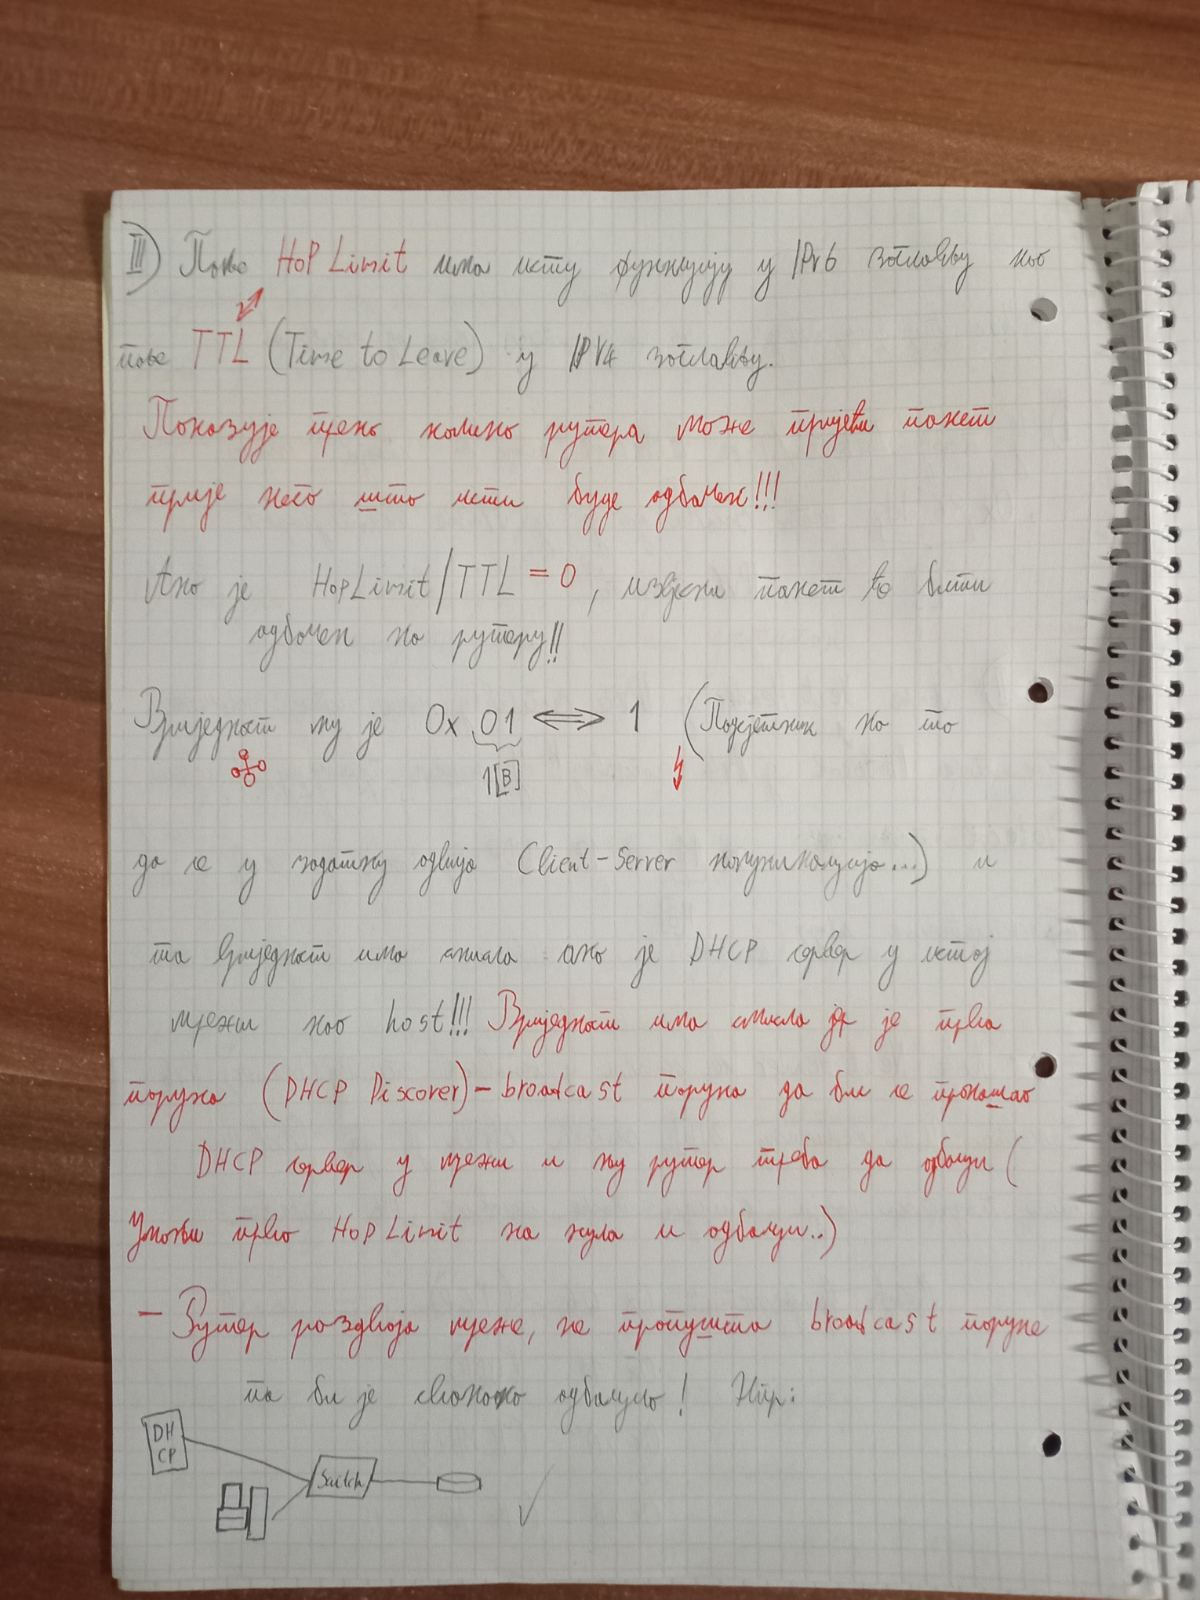 III) Поље Hop Limit има исту функцију у IPv6 заглављу као
поље TTL (Time to Leave) у IPV4 заглављу.
Показује преко колико рутера може пријећи пакет
прије него што исти буде одбачен!!!
Ако је HopLimit/TTL = 0, пакет ће бити
одбачен на рутеру!!
Вриједност му је 0x 01 ⟺ 1 (Подсјетник на то
1[B]
да се у задатку одвија Client-Server комуникација...) и
та вриједност има смисла ако је DHCP сервер у истој
мрежи као host!!! Вриједност има смисла јер је прва
порука (DHCP Discover) - broadcast порука да би се пронашао
DHCP сервер у мрежи и њу рутер треба да одбаци (
Умањи прво Hop Limit на нула и одбаци..)
- Рутер раздваја мреже, не пропушта broadcast поруке
па би је свакако одбацио! Нпр:
DH
CP
Switch